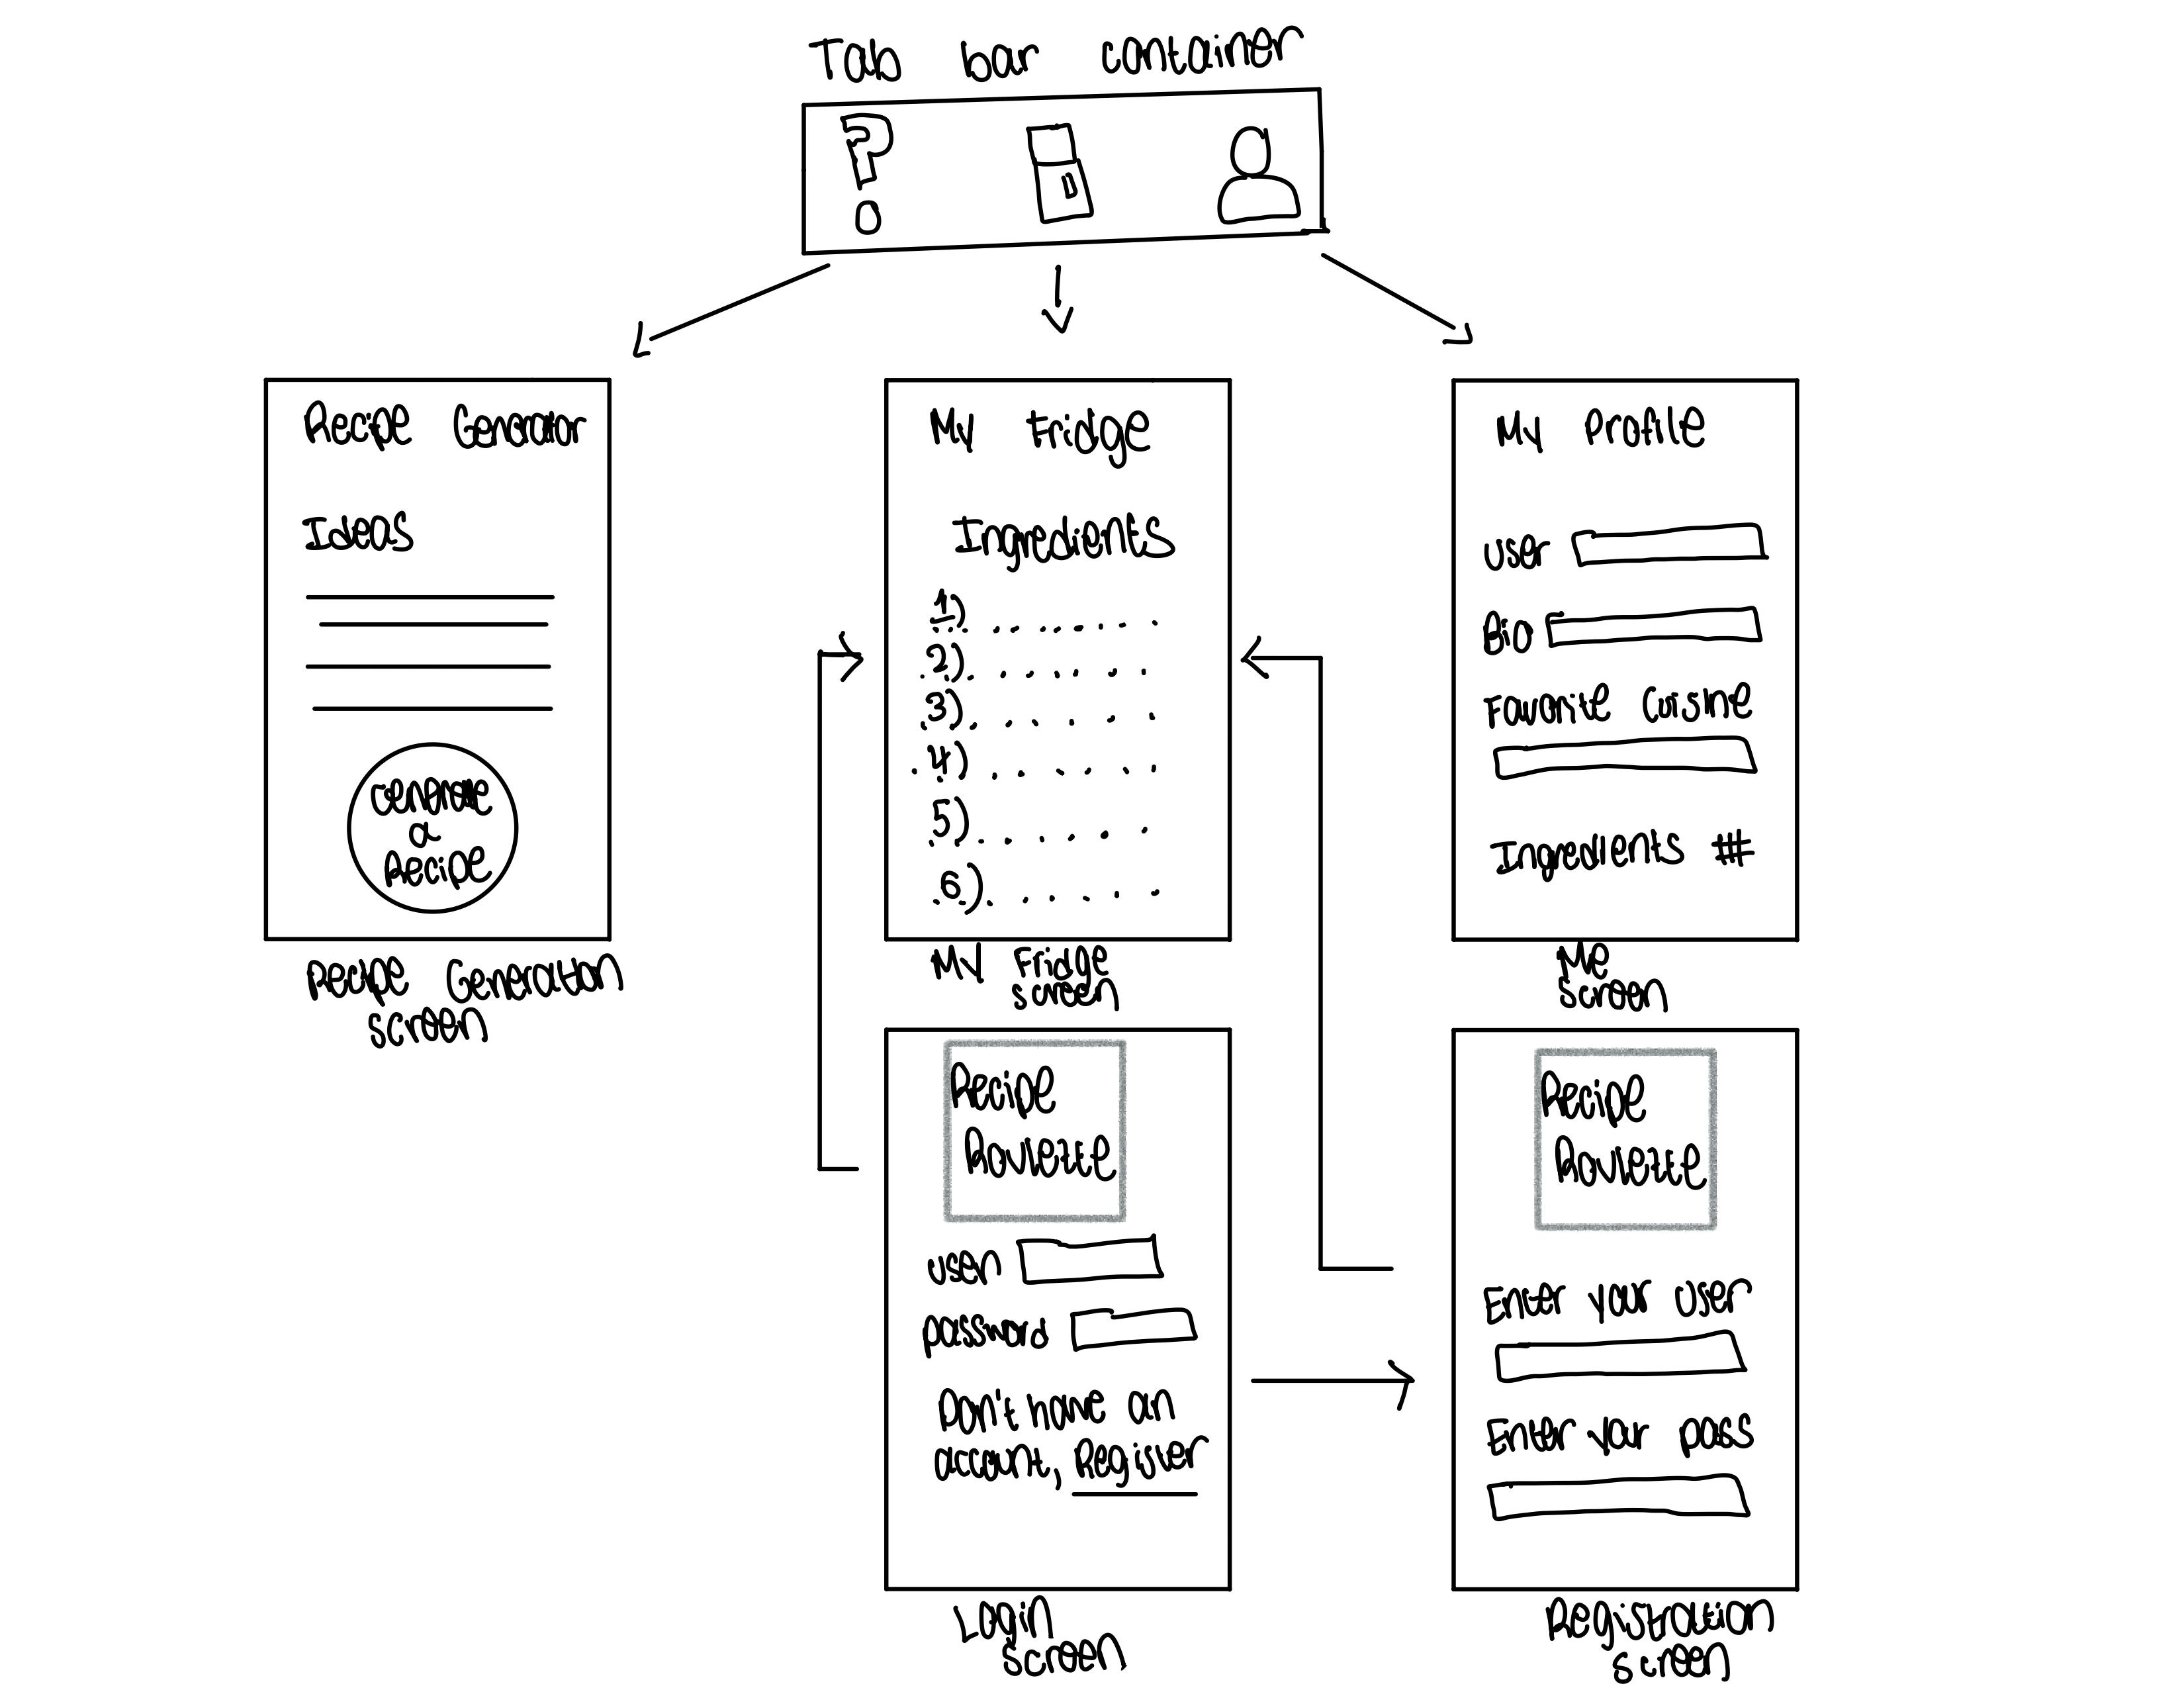 Tab bar container
?
Recipe Generator
Ideas
Generate
a
Recipe
Recipe Generation
screen
My Fridge
Ingredients
1)
2)
3)
4)
5)
6)
My Fridge
screen
My Profile
user
Bio
Favorite Cuisine
Ingredients #
Me
screen
Recipe
Roulette
user
password
Don't have an
account, Register
Login
screen
Recipe
Roulette
Enter your user
Enter your pass
Registration
screen